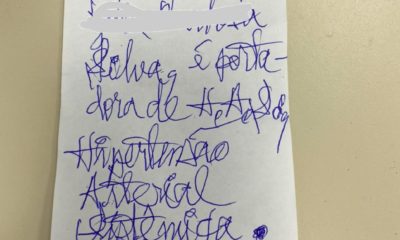 Silva, é porta-
dora de H.A.S,
Hipertensão
Arterial
Sistêmica.